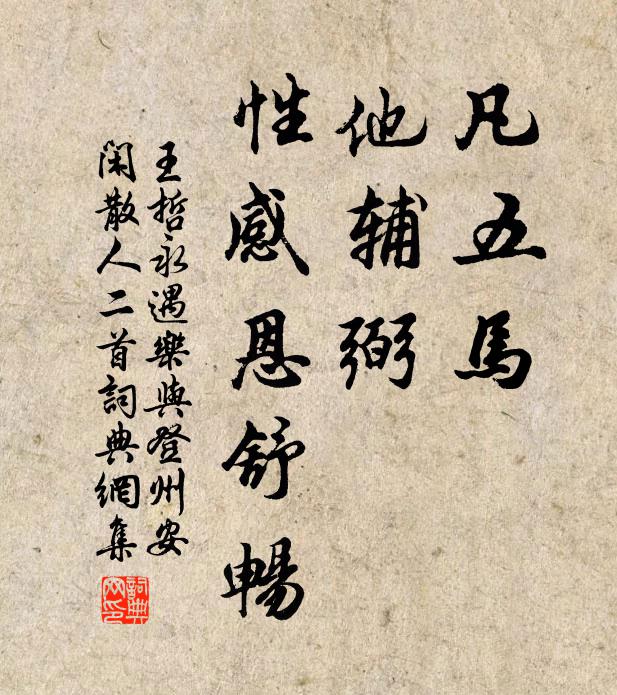 凡五馬
他辅弼
性感恩舒暢
王哲永遇樂與登州安
閑散人二首詞典網集
詞典
网印